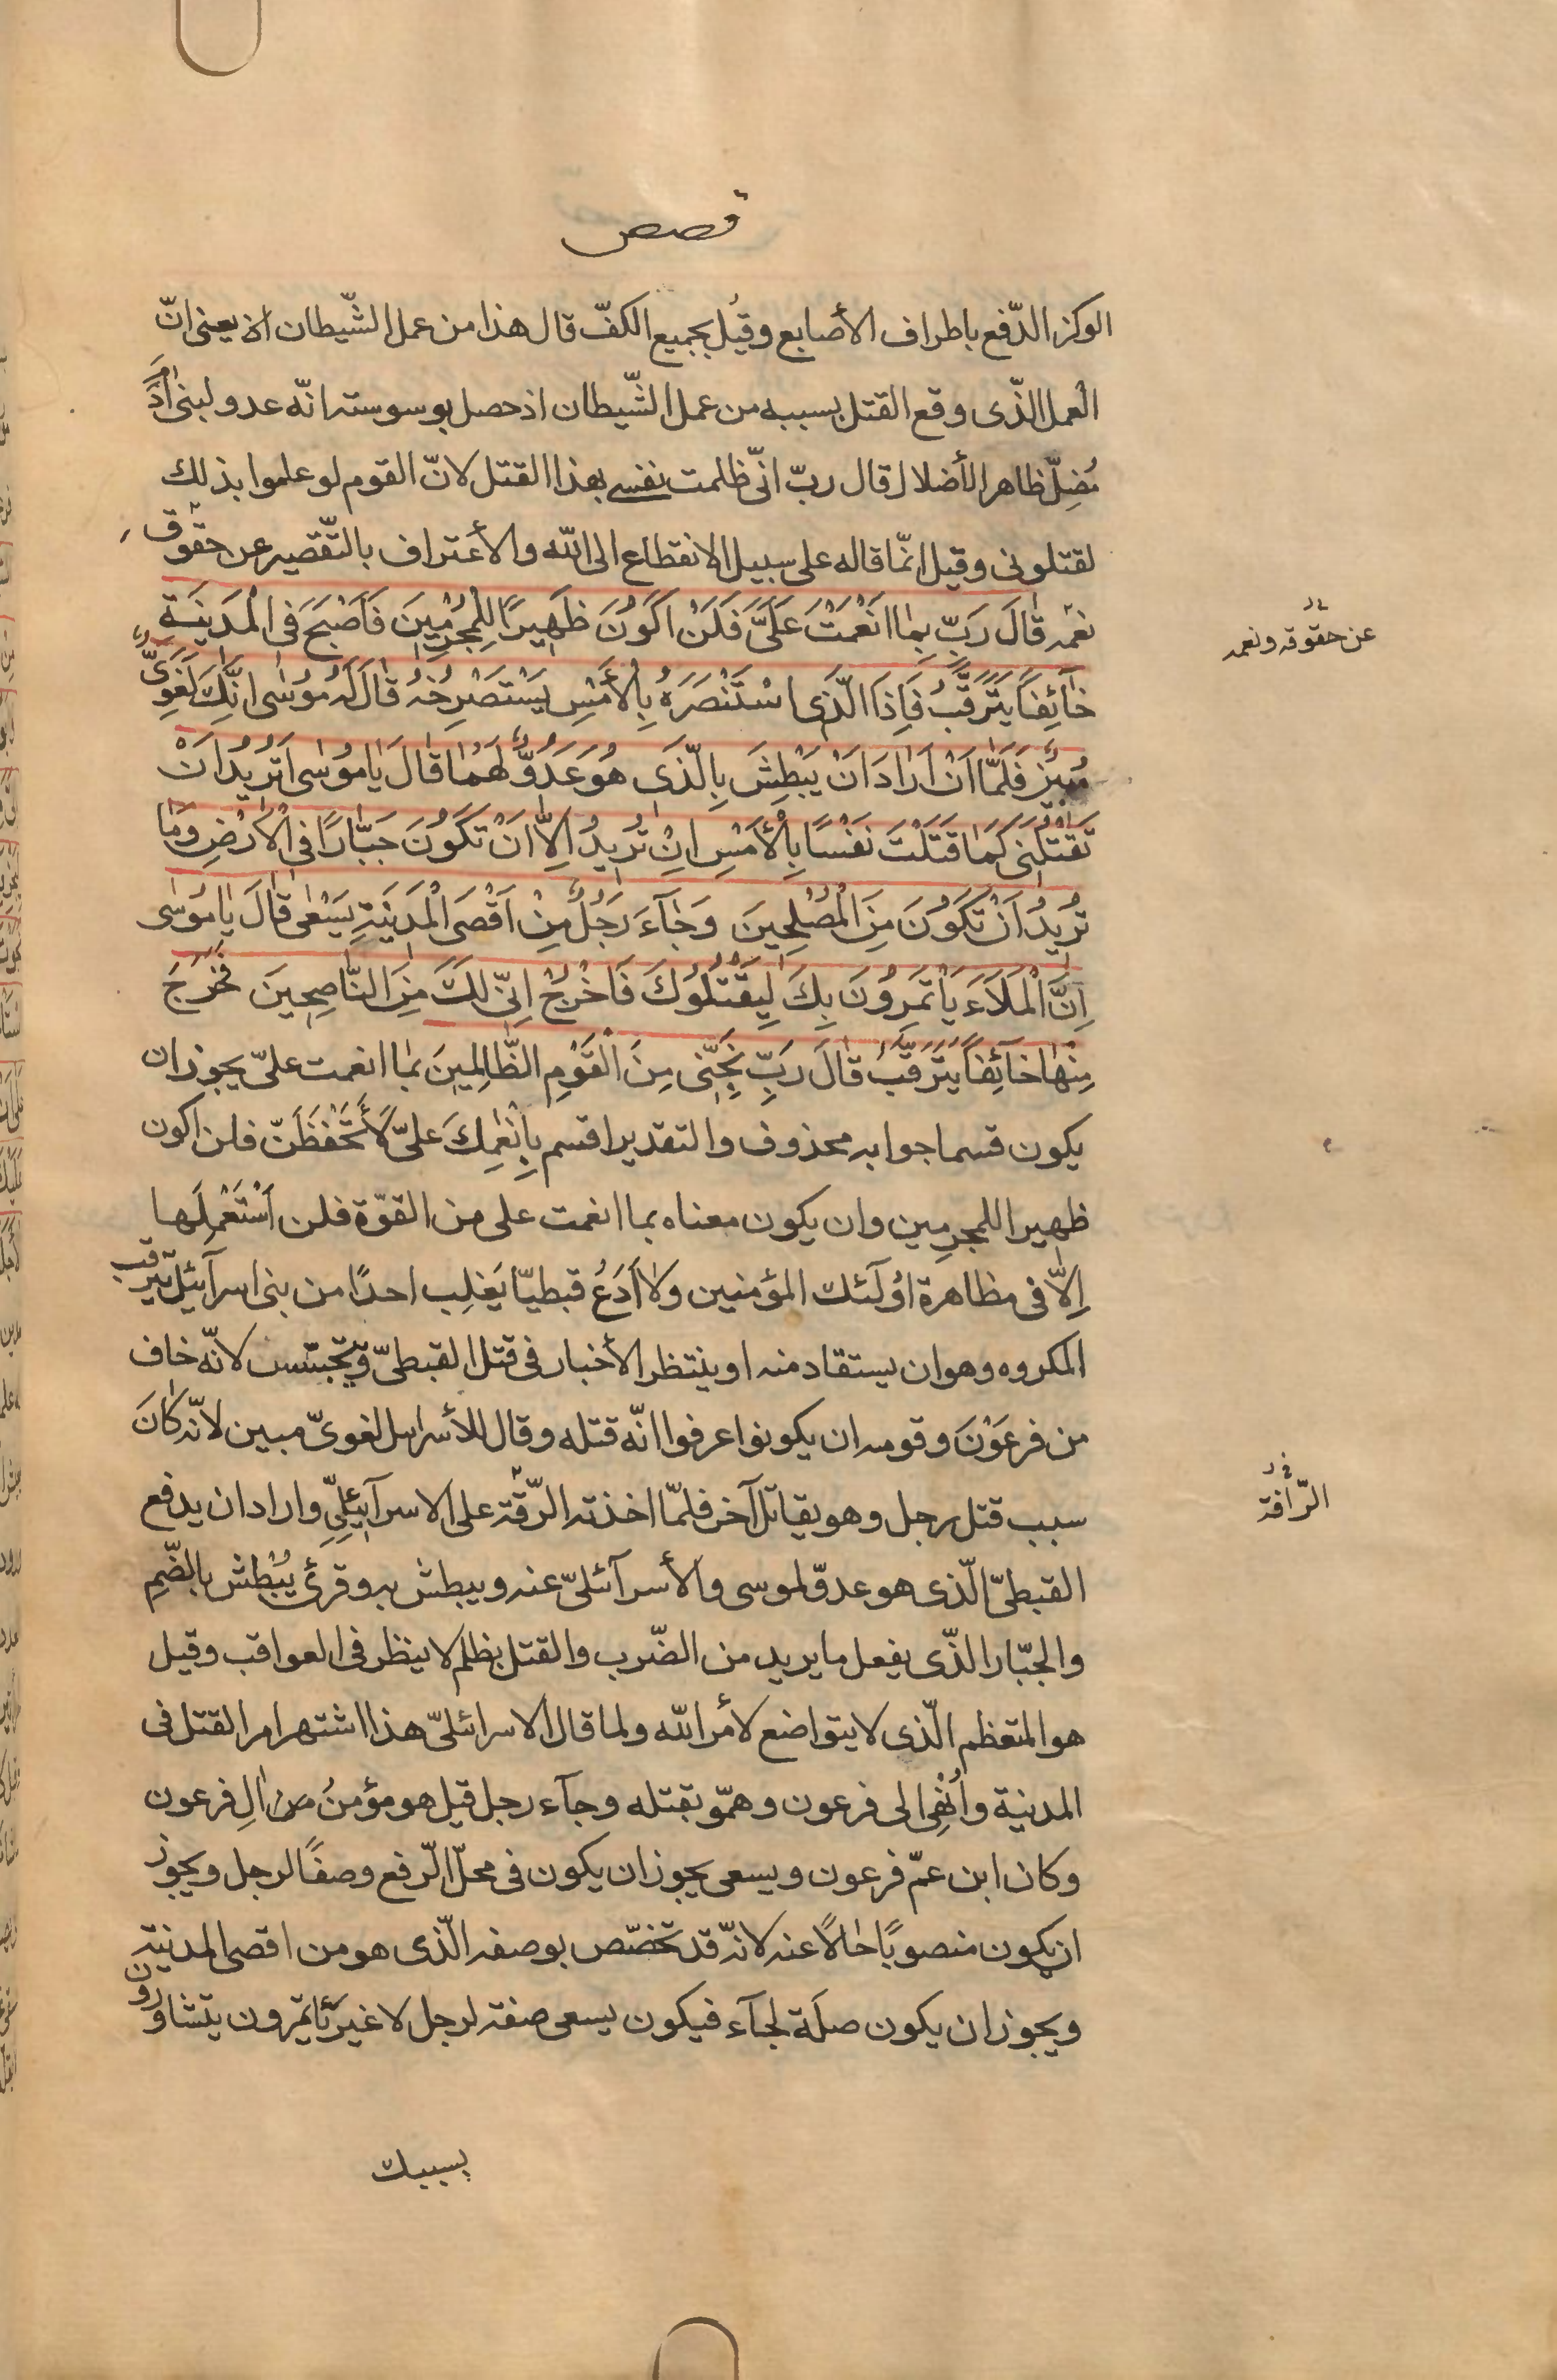 قصص
الوكز الدّفع باطراف الأصابع وقيل بجميع الكفّ قال هذا من عمل الشّيطان لانه يعنى انّ
العمل الذّى وقع القتل بسببه من عمل الشّيطان اذ حصل بوسوسته انّه عدو لبنى اٰدم
مُضِلّ ظاهر الأضلال قال ربّ انّى ظلمت نفسى بهذا القتل لانّ القوم لو علموا بذلك
لقتلونى وقيل انمّا قاله على سبيل الانقطاع الى الله والأعتراف بالتّقصير عن حقوق
نعمه قٰالَ رَبِّ بِمٰا انَعْمَتْ عَلَىَّ فَلَنْ اَكَوُنَ ظَهيِرًا لِلْمُجرِمْيٖنَ فَاَصْبَحَ فِى الْمَديٖنَةِ
خٰآئِفًا يَتَرَقَّبُ فَاِذَا الّذَى اسْتَنْصَرَهُ بِالأَمْسِ يَسْتَصْرِخُهُ قٰالَ لَهُ مُوسٰى اِنَّكَ لَغَوِىٌّ
مُبيٖنٌ فَلَمّٰا اَنْ اَرٰادَ اَنْ يَبْطِشَ بِالّذَى هُوَ عَدُوٌّ لَهُمٰا قٰالَ يٰا مُوسٰى اَتُريٖدُ اَنْ
تَقْتُلَنى كَمٰا قَتَلْتَ نَفْسًا بِالْأَمْسِ اِنْ تُريٖدُ اِلاّٰ اَنْ تَكَوُنَ جَبّٰارًا فِى الْأَرْضِ وَمٰا
تُريٖدُ اَنْ تَكَوُنَ مِنَ الْمُصْلِحيٖنَ وَجٰآءَ رَجُلٌ مِنْ اَقْصَى الْمَديٖنَةِ يَسْعٰى قٰالَ يٰا مُوسٰى
اِنَّ الْمَلَاَءَ يَأْتَمِرُونَ بِكَ لِيَقْتُلُوكَ فَاخْرُجْ اِنّى لَكَ مِنَ النّٰاصِحيٖنَ فَخَرَجَ
مِنْهٰا خٰآئِفًا يَتَرَقَّبُ قٰالَ رَبِّ نَجِّنٖى مِنَ الْقَوْمِ الظّٰالِميٖنَ بمٰا انعمت علىّ يجوز ان
يكون قسما جوابه محذوف والتقدير اقسم بِاِنْعٰامِكَ علىّ لَأَتَحْفَظَنّ فلن اكون
ظهيرا للمجرمين وان يكون معناه بما انعمت على من القوّة فلن اَسْتَعْمِلَها
اِلاّٰ فى مظاهرة اوُلٓئك المؤمنين ولاٰ اَدَعُ قبطيّا يَغلِب احدًا من بنى اسرآئيل يترقب
المكروه وهو ان يستقاد منه او ينتظر الأخبار فى قتل القبطىّ ويتجسّس لانّه خاف
من فرعَوْنَ وقومه ان يكونوا عرفوا انّه قتله وقال للأسرائيلى لغوىّ مبين لانّه كٰانَ
سبب قتل رجل وهو يقاتل آخر فلمّا اخذته الرّقّة على الاسرآئيلِىِّ واراد ان يدفع
القبطىّ الّذى هو عدوّ لموسى والأسرآئلىّ عنه ويبطش به وقرئ يَبْطُش بالضّمِ
والجبّار الذّى يفعل ما يريد من الضّرب والقتل بظلم لا ينظر فى العواقب وقيل
هو المتعظم الّذى لا يتواضع لأمر الله ولما قال الاسرائلىّ هذا اشتهر امر القتل فى
المدنية واُنْهِى الى فرعون وهمّو بقتله وجآء رجل قيل هو مؤمنُ من اٰلِ فرعون
وكان ابن عمّ فرعون ويسعى يجوز ان يكون فى محلّ الرّفع وصفًا لرجل ويجوز
ان يكون منصوبًا حٰالًا عنه لانّه قد تخصّص بوصفه الّذى هو من اقصى المدنية
ويجوز ان يكون صلَة لجآء فيكون يسعى صفة لرجل لا غير يأتمرون يتشاورون
بسببك
عن حقوقه ونعمه
الرّافة